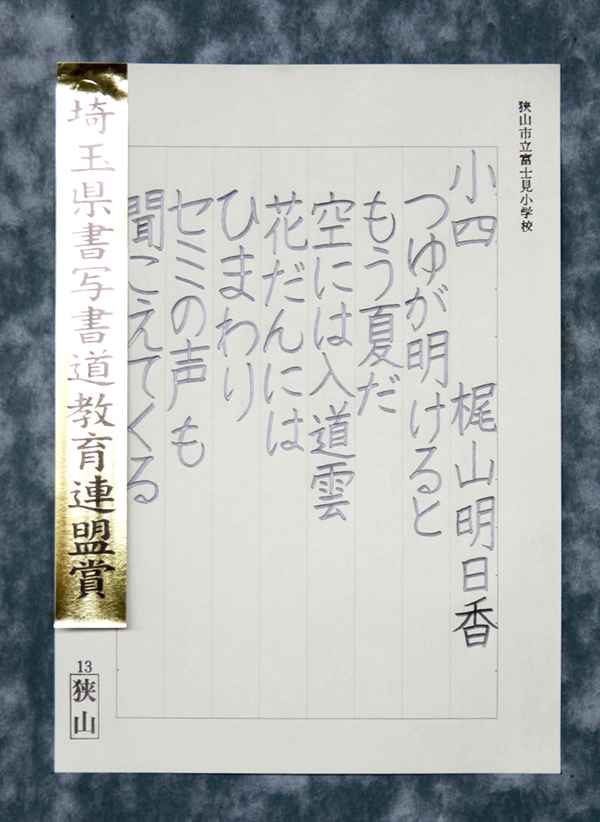 狭山市立富士見小学校
小四 梶山明日香
つゆが明けると
もう夏だ
空には入道雲
花だんには
ひまわり
セミの声も
聞こえてくる
埼玉県書写書道教育連盟賞
13
狭山